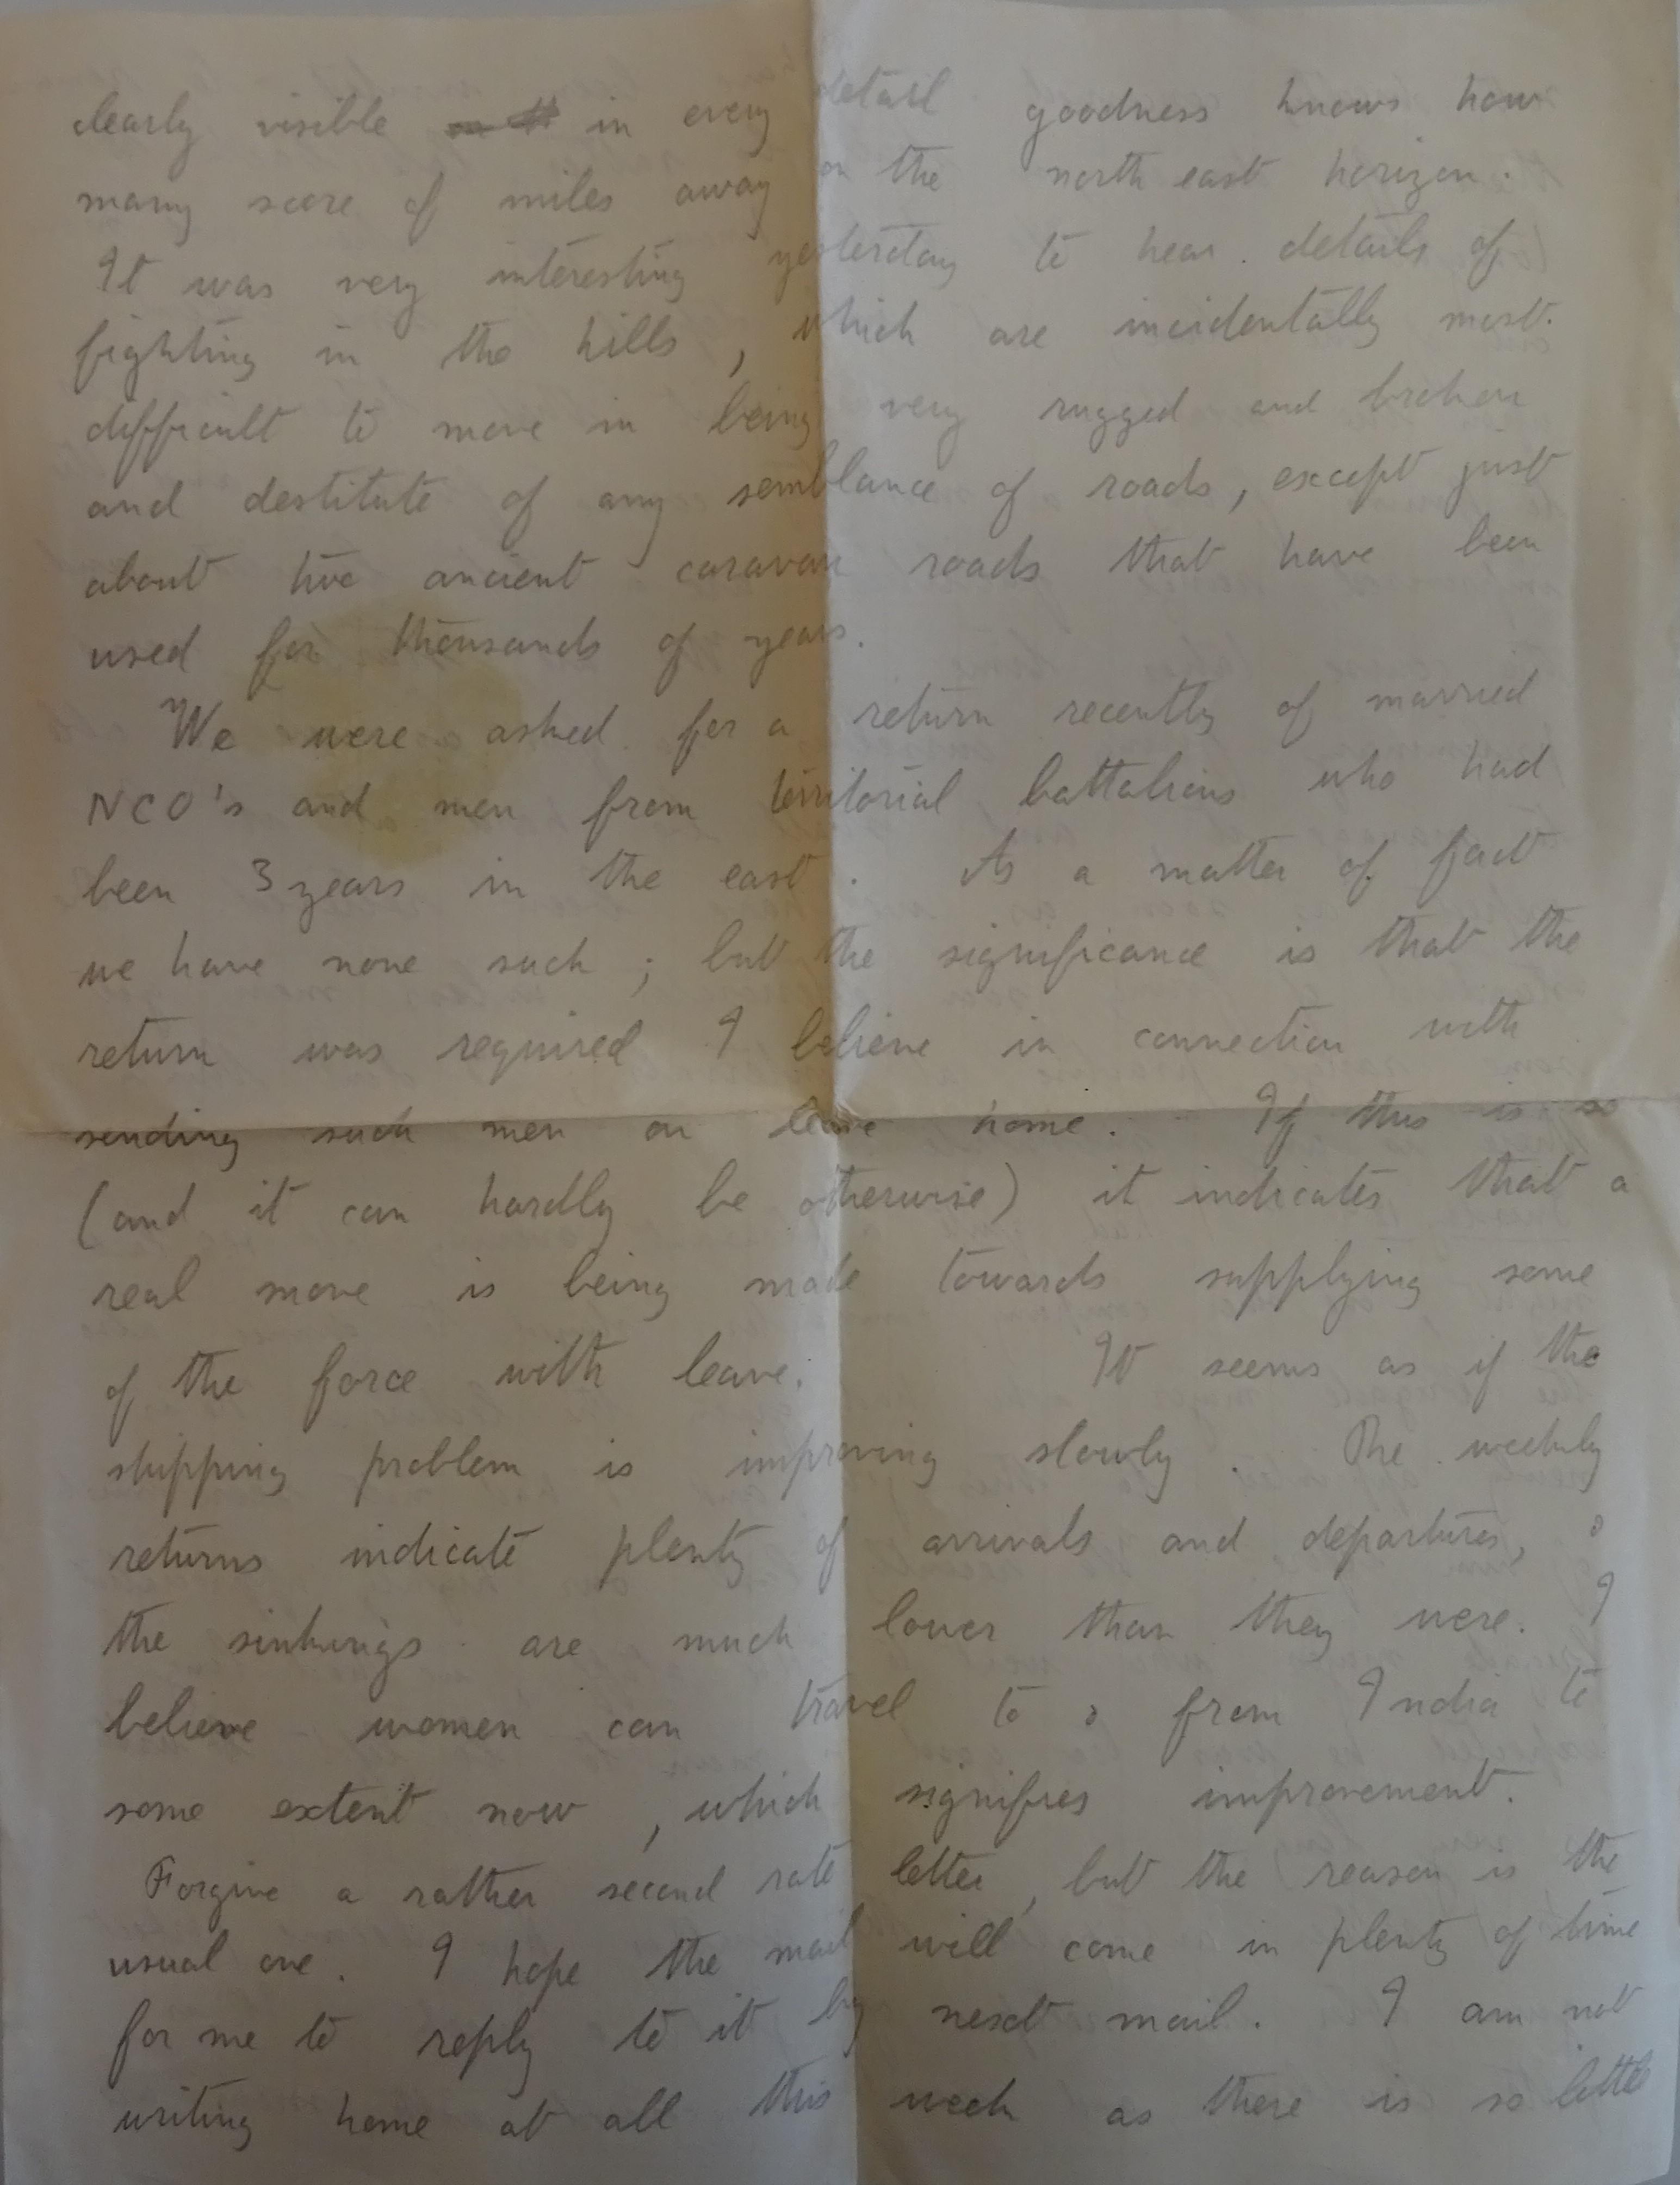 clearly visible in every detail goodness knows how
many score of miles away on the north east horizon.
It was very interesting yesterday to hear details of
fighting in the hills, which are incidentally most
difficult to move in being very rugged and broken
and destitute of any semblance of roads, except just
about two ancient caravan roads that have been
used for thousands of years.
We were asked for a return recently of married
NCO's and men from territorial battalions who had
been 3 years in the east. As a matter of fact
we have none such; but the significance is that the
return was required I believe in connection with
sending such men on leave home. If this is so
(and it can hardly be otherwise) it indicates that a
real move is being made towards supplying some
of the force with leave. It seems as if the
shipping problem is improving slowly. The weekly
returns indicate plenty of arrivals and departures, &
the sinkings are much lower than they were. I
believe women can travel to & from India to
some extent now, which signifies improvement.
Forgive a rather second rate letter, but the reason is the
usual one. I hope the mail will come in plenty of time
for me to reply to it by next mail. I am not
writing home at all this week as there is so little